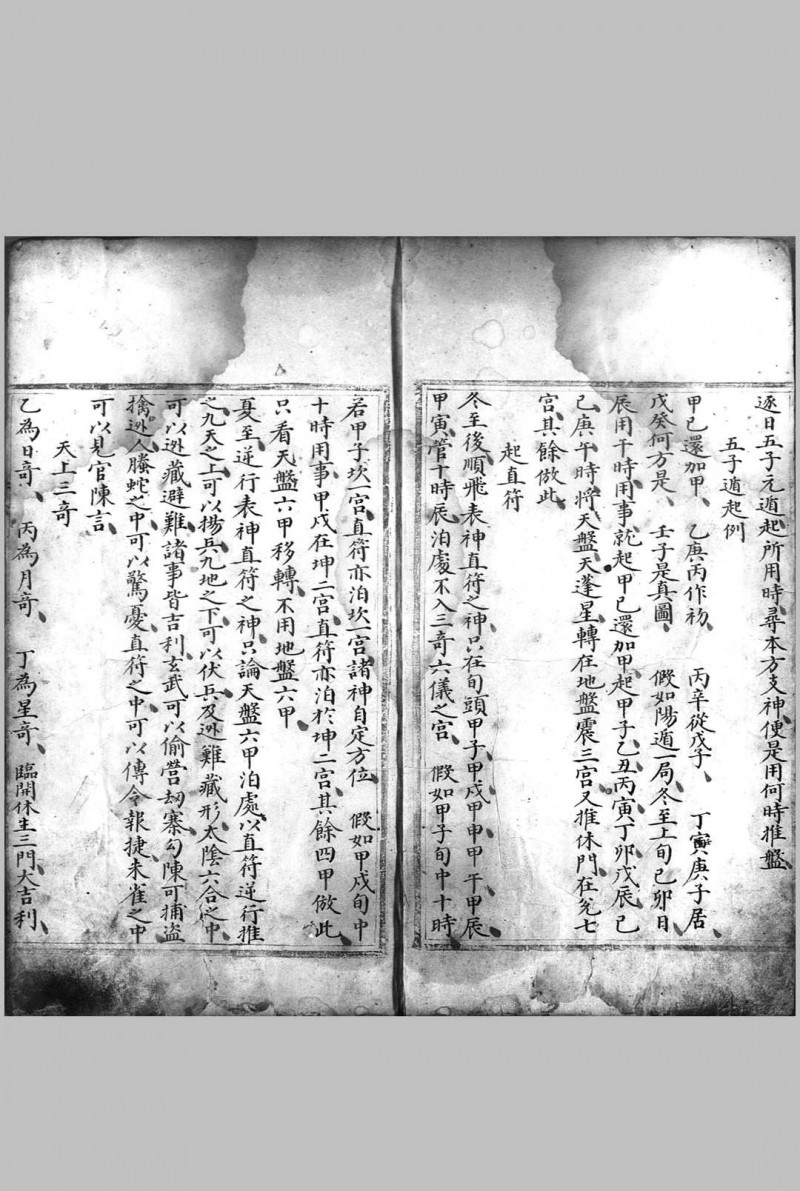 逐日五子元遁起所用時尋本方支神便是用何時推盤
五子遁起例
甲己還加甲、 乙庚丙作初、 丙辛從戊子、 丁寅庚子居、
戊癸何方是、 壬子是真圖、 假如陽遁一局冬至上旬己卯日
辰用千時用事就起甲己還加甲起甲子乙丑丙寅丁卯戊辰己
己庚午時將天盤天蓬星轉在地盤震三宮又推休門在兌七
宮其餘倣此
起直符
冬至後順飛表神直符之神只在旬頭甲子甲戌甲申甲午甲辰
甲寅管十時辰泊處不入三奇六儀之宮、 假如甲子旬中十時
若甲子坎一宮直符亦泊坎一宮諸神自定方位、 假如甲戌旬中
十時用事甲戌在坤二宮直符亦泊於坤二宮其餘四甲倣此、
只看天盤六甲移轉不用地盤六甲、
夏至逆行表神直符之神只論天盤六甲泊處以直符逆行推
之九天之上可以揚兵九地之下可以伏兵及逃難藏形太陰六合之中
可以逃藏避難諸事皆吉利玄武可以偷營刼寨勾陳可捕盜
擒逃人螣蛇之中可以驚憂直符之中可以傳令報捷朱雀之中
可以見官陳言
天上三奇
乙為日奇、 丙為月奇、 丁為星奇、 臨開休生三門大吉利、